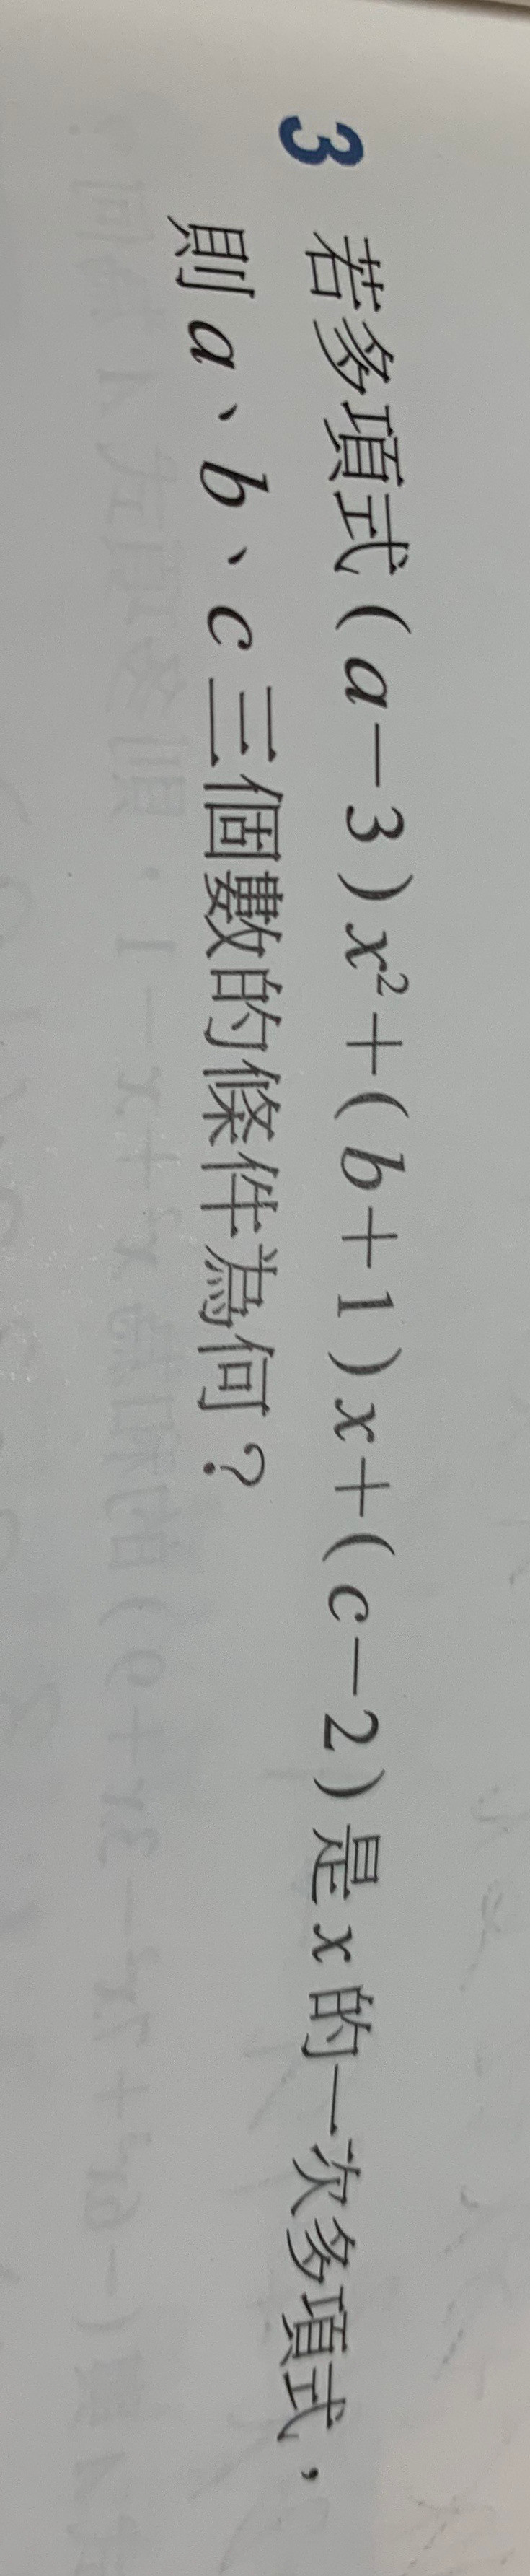 3 若多項式(a-3)x²+(b+1)x+(c-2)是x的一次多項式，
則a、b、c三個數的條件為何？